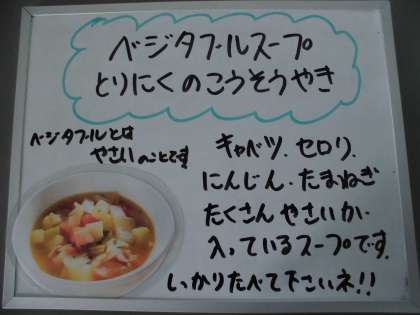 ベジタブルスープ
とりにくのこうそうやき
ベジタブルとは
やさいのことです
キャベツ、セロリ、
にんじん・たまねぎ
たくさんやさいが
入っているスープです。
しっかりたべて下さいネ!!